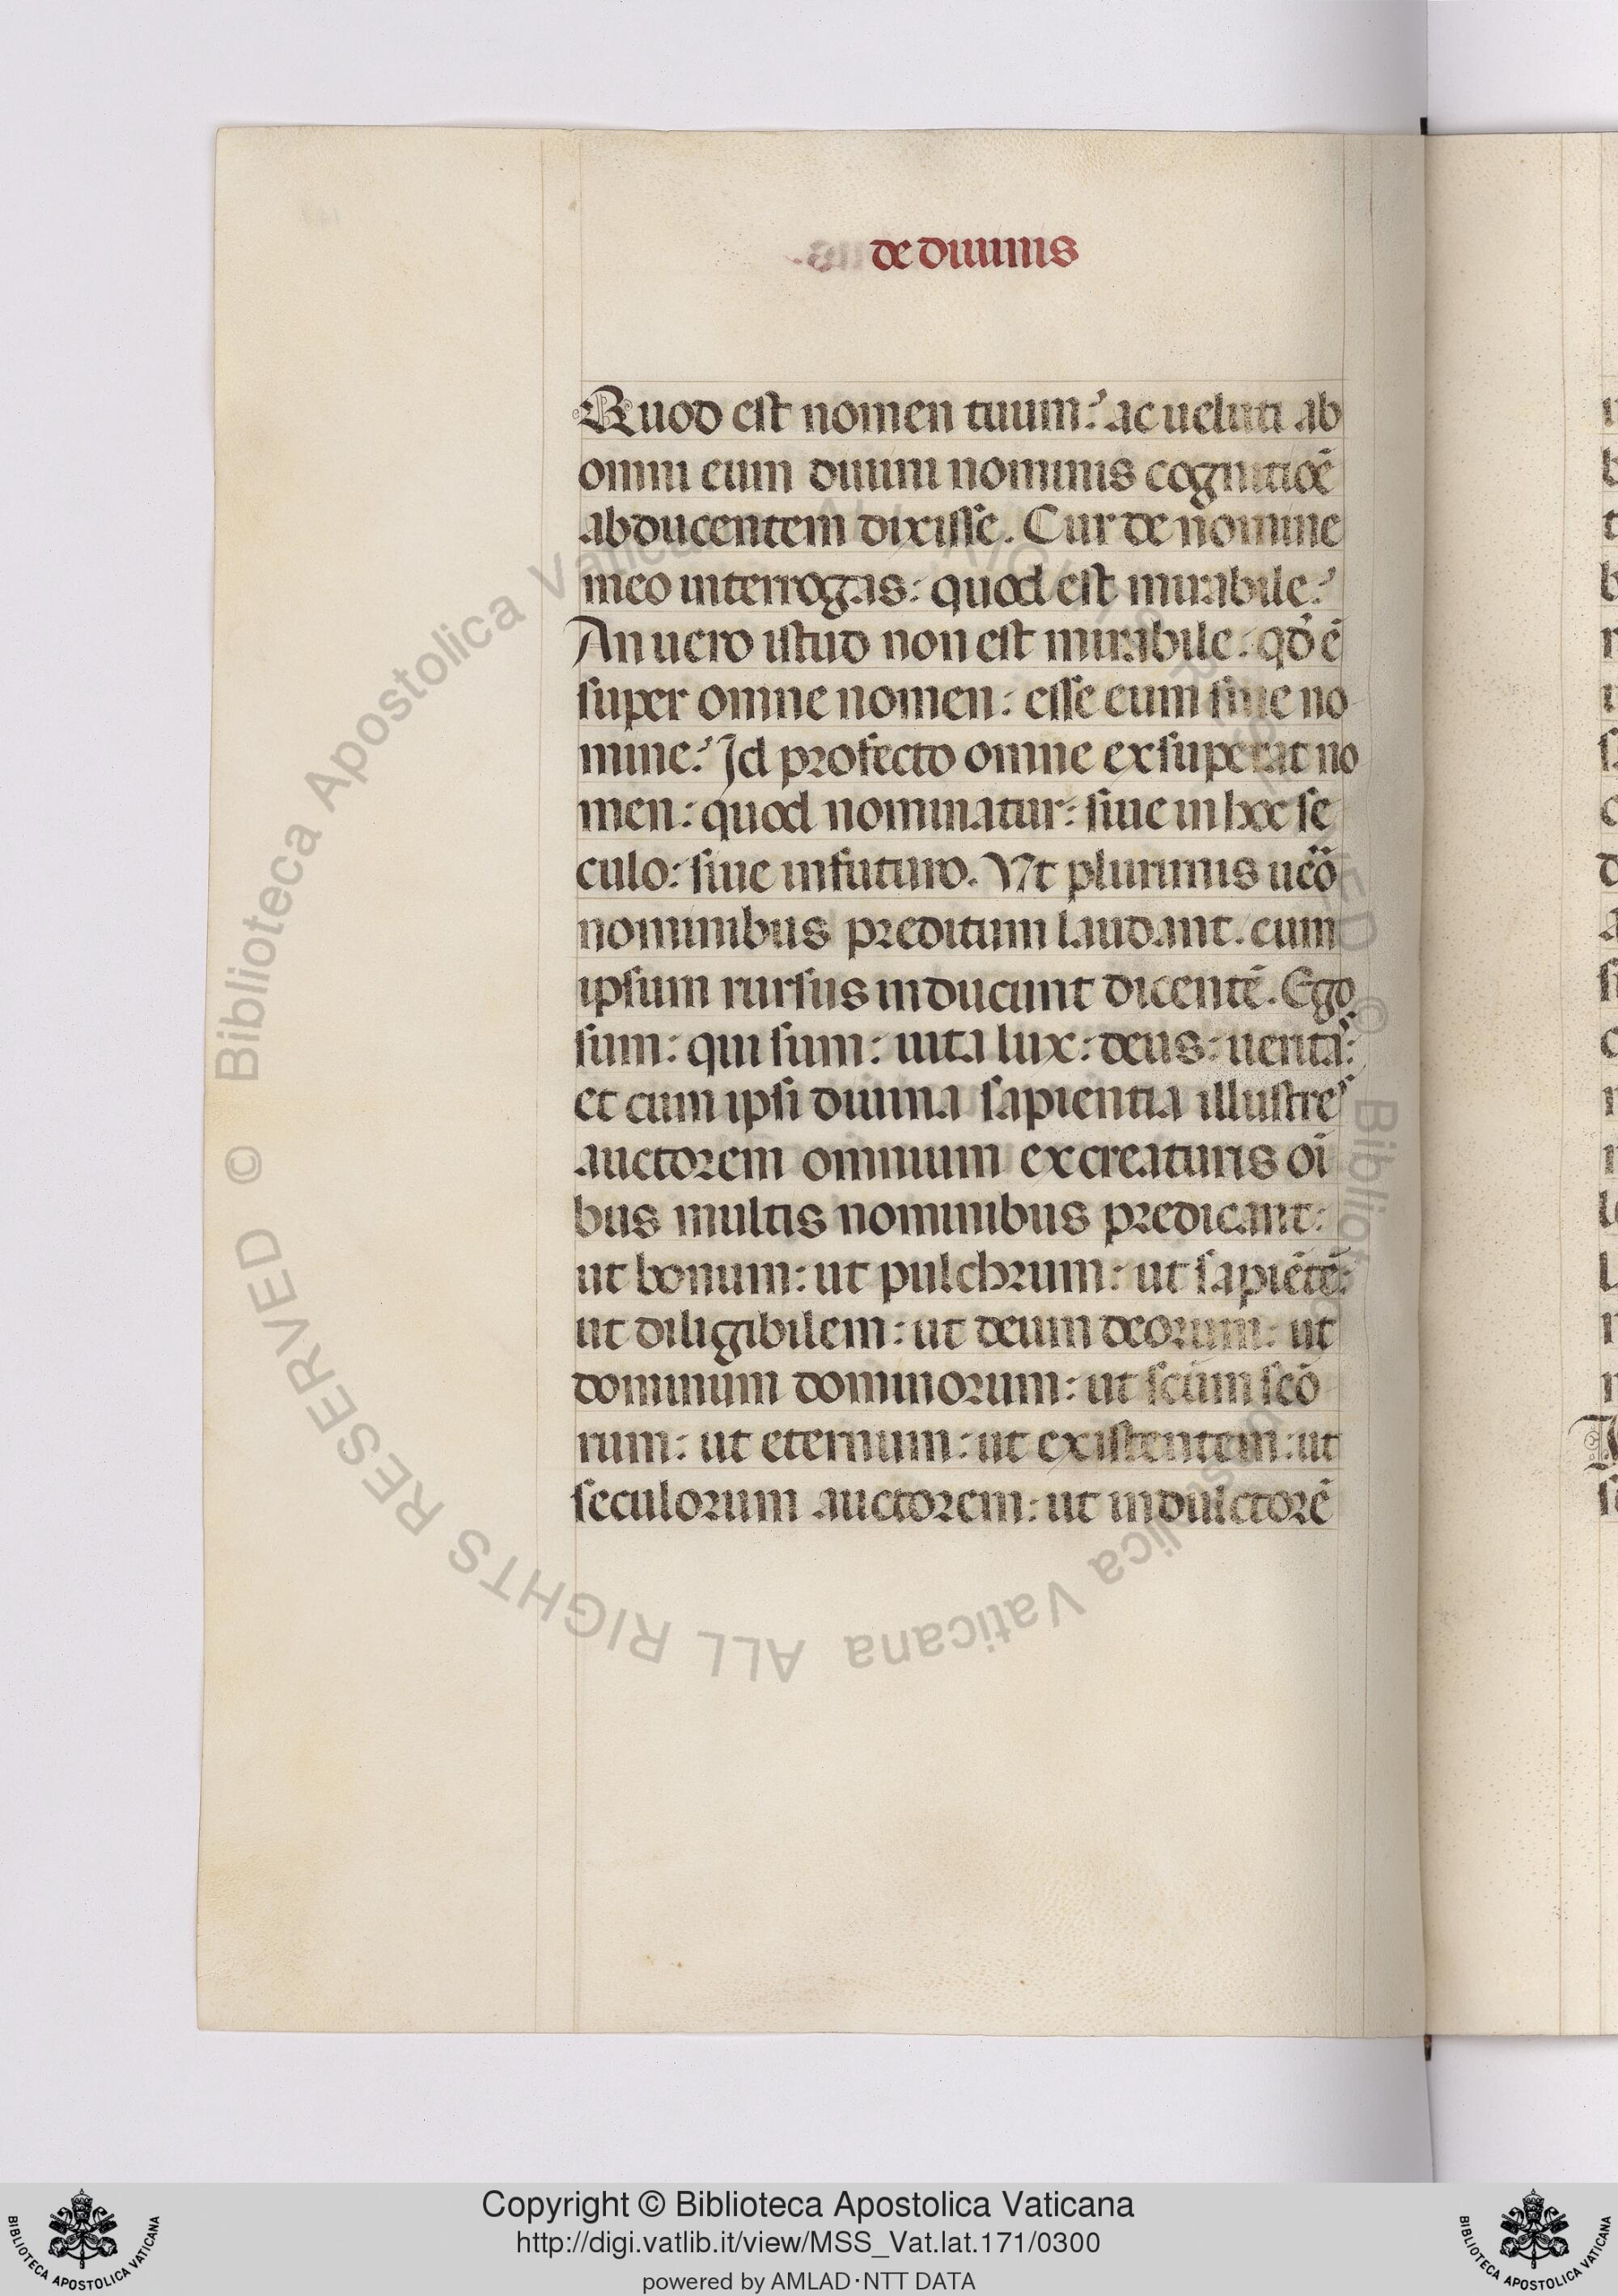 de diuinis
Quod est nomen tuum? ac ueluti ab
omni eum diuini nominis cognitiōe
abducentem dixisse. Cur de nomine
meo interrogas: quod est mirabile?
An uero istud non est mirabile: qđ ē
super omne nomen: esse eum sine no
mine? Id profecto omne exsuperat no
men: quod nominatur: siue in hoc se
culo: siue in futuro. Vt plurimis uēo
nominibus preditum laudant. cum
ipsum rursus inducunt dicentē. Ego
sum: qui sum: uita lux: deus: ueritaˢ:
et cum ipsi diuina sapientia illustreˢ
auctorem omnium ex creaturis oī
bus multis nominibus predicant:
ut bonum: ut pulchrum: ut sapiētē:
ut diligibilem: ut deum deorum: ut
dominum dominorum: ut scūm scō
rum: ut eternum: ut existentem: ut
seculorum auctorem: ut indultorē
© Biblioteca Apostolica Vaticana ALL RIGHTS RESERVED
Copyright © Biblioteca Apostolica Vaticana
http://digi.vatlib.it/view/MSS_Vat.lat.171/0300
powered by AMLAD·NTT DATA
BIBLIOTECA APOSTOLICA VATICANA
BIBLIOTECA APOSTOLICA VATICANA